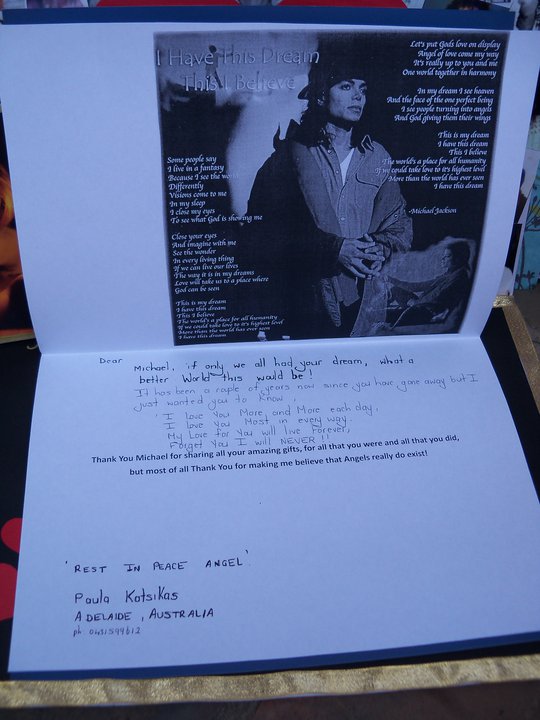 I Have This Dream
This I Believe
Some people say
I live in a fantasy
Because I see the world
Differently
Visions come to me
In my sleep
I close my eyes
To see what God is showing me
Close your eyes
And imagine with me
See the wonder
In every living thing
If we can live our lives
The way it is in my dreams
Love will take us to a place where
God can be seen
This is my dream
I have this dream
This I believe
The world's a place for all humanity
If we could take love to it's highest level
More than the world has ever seen
I have this dream
Let's put Gods love on display
Angel of love come my way
It's really up to you and me
One world together in harmony
In my dream I see heaven
And the face of the one perfect being
I see people turning into angels
And God giving them their wings
This is my dream
I have this dream
This I believe
The world's a place for all humanity
If we could take love to it's highest level
More than the world has ever seen
I have this dream
-Michael Jackson
Dear Michael, if only we all had your dream, what a
better World this would be!
It has been a cople of years now since you have gone away but I
just wanted you to know,
'I love You More and More each day,
I love You Most in every way.
My Love for You will live Forever,
Forget You I will NEVER!!
Thank You Michael for sharing all your amazing gifts, for all that you were and all that you did,
but most of all Thank You for making me believe that Angels really do exist!
'REST IN PEACE ANGEL'
Paula Katsikas
ADELAIDE, AUSTRALIA
ph 0431599612